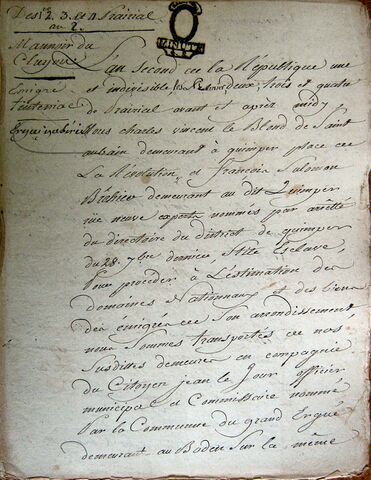 Des 1er 2. 3. et 4 Prairial
an 2.
MINUTE
Mannoir du
Cluyou
Emigré
Tinteniac
L'an second de la République une
et indivisible les premier deux, trois et quatre
de Prairial avant et après midy
Nous charles vincent le Blond de Saint
aubain demeurant a quimper place de
La Révolution et françois Salomon
Bréhier demeurant au dit Quimper
rue neuve experts nommés par arrêté
du directoire du district de quimper
du 28. 7bre dernier, Stile Esclave,
Pour proceder à L'estimation des
domaines Nationnaux et des biens
des emigrés de Son arrondissement
nous Sommes transportés de nos
Susdites demeures en compagnie
du Citoyen jean le Jour officier
municipal et Commissaire nommé
Par la Commune du grand Ergué
demeurant au Boden Sur la même